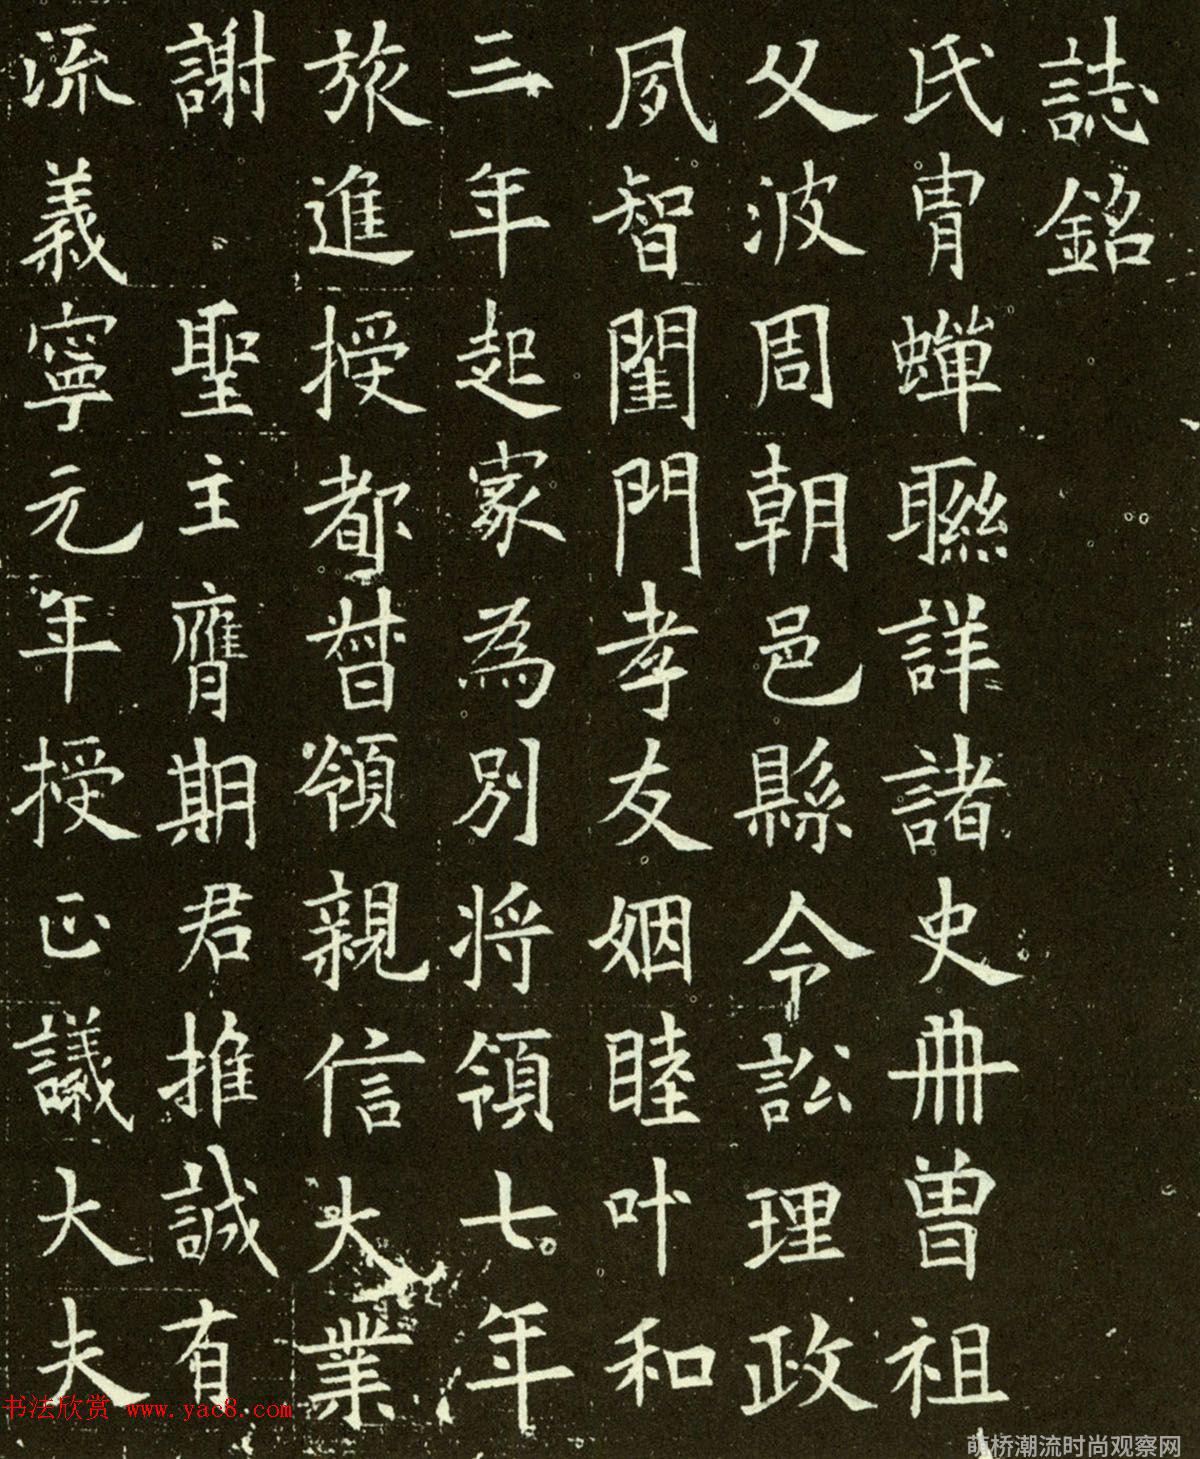 誌銘
氏胄蟬聯詳諸史冊曾祖
父波周朝邑縣令訟理政
夙智閨門孝友姻睦叶和
三年起家為別將領七年
旅進授都督領親信大業
謝聖主膺期君推誠有
流義寧元年授正議大夫
书法欣赏 www.yac8.com
萌桥潮流时尚观察网